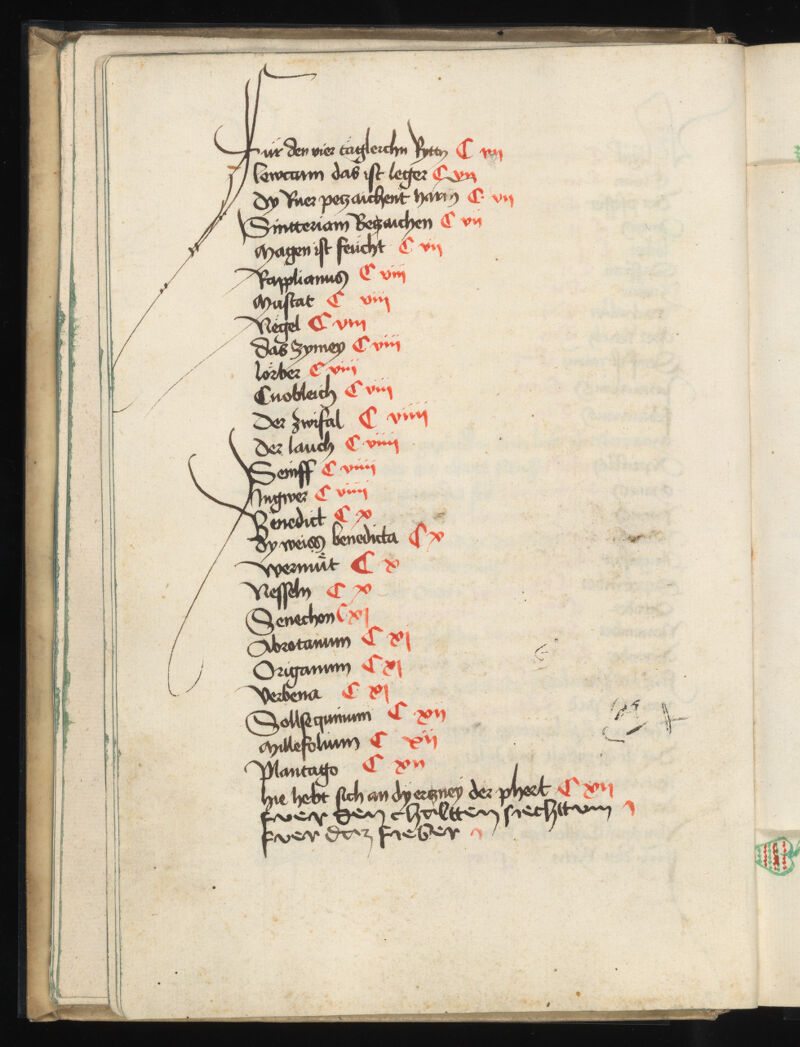 Für den vier täglichn Ryttn C vii
lewcum das ist leger C vii
dy Rner peczaichent harm C vii
Sintteriam Beczaichen C vii
Magen ist feücht C vii
Rapplianus C viii
Muscat C viii
Negel C viii
das zymey C viii
lorber C viii
Cnobleich C viii
Der zwifal C viiii
der lauch C viiii
Seniff C viiii
Ingwer C viiii
Benedict C x
Dy weiss benedicta C x
wermüt C x
Nesseln C x
Senechon C xi
Abrotanum C xi
Origanum C xi
Verbena C xi
Sollsequinum C xii
Millefolium C xii
Plantago C xii
hie hebt sich an dy erczney der phert C xii
Fver den chaltten siechttvm 1
Fver daz Fieber 1